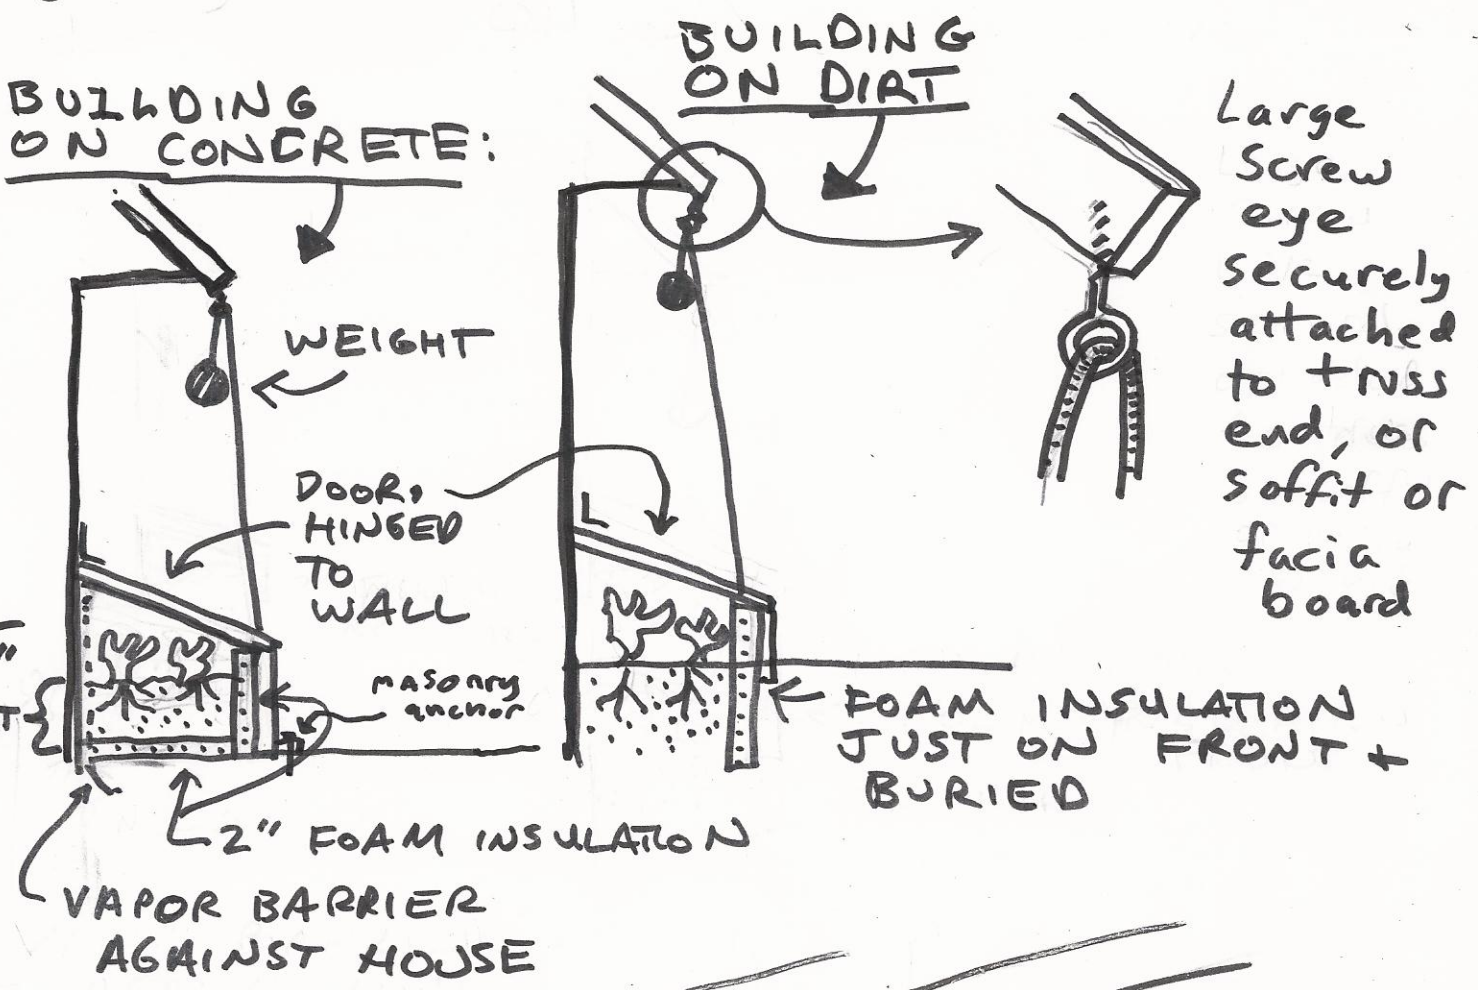 BUILDING
ON CONCRETE:
BUILDING
ON DIRT
Large
screw
eye
securely
attached
to truss
end, or
soffit or
facia
board
WEIGHT
DOOR,
HINGED
TO
WALL
masonry
anchor
FOAM INSULATION
JUST ON FRONT +
BURIED
2" FOAM INSULATION
VAPOR BARRIER
AGAINST HOUSE